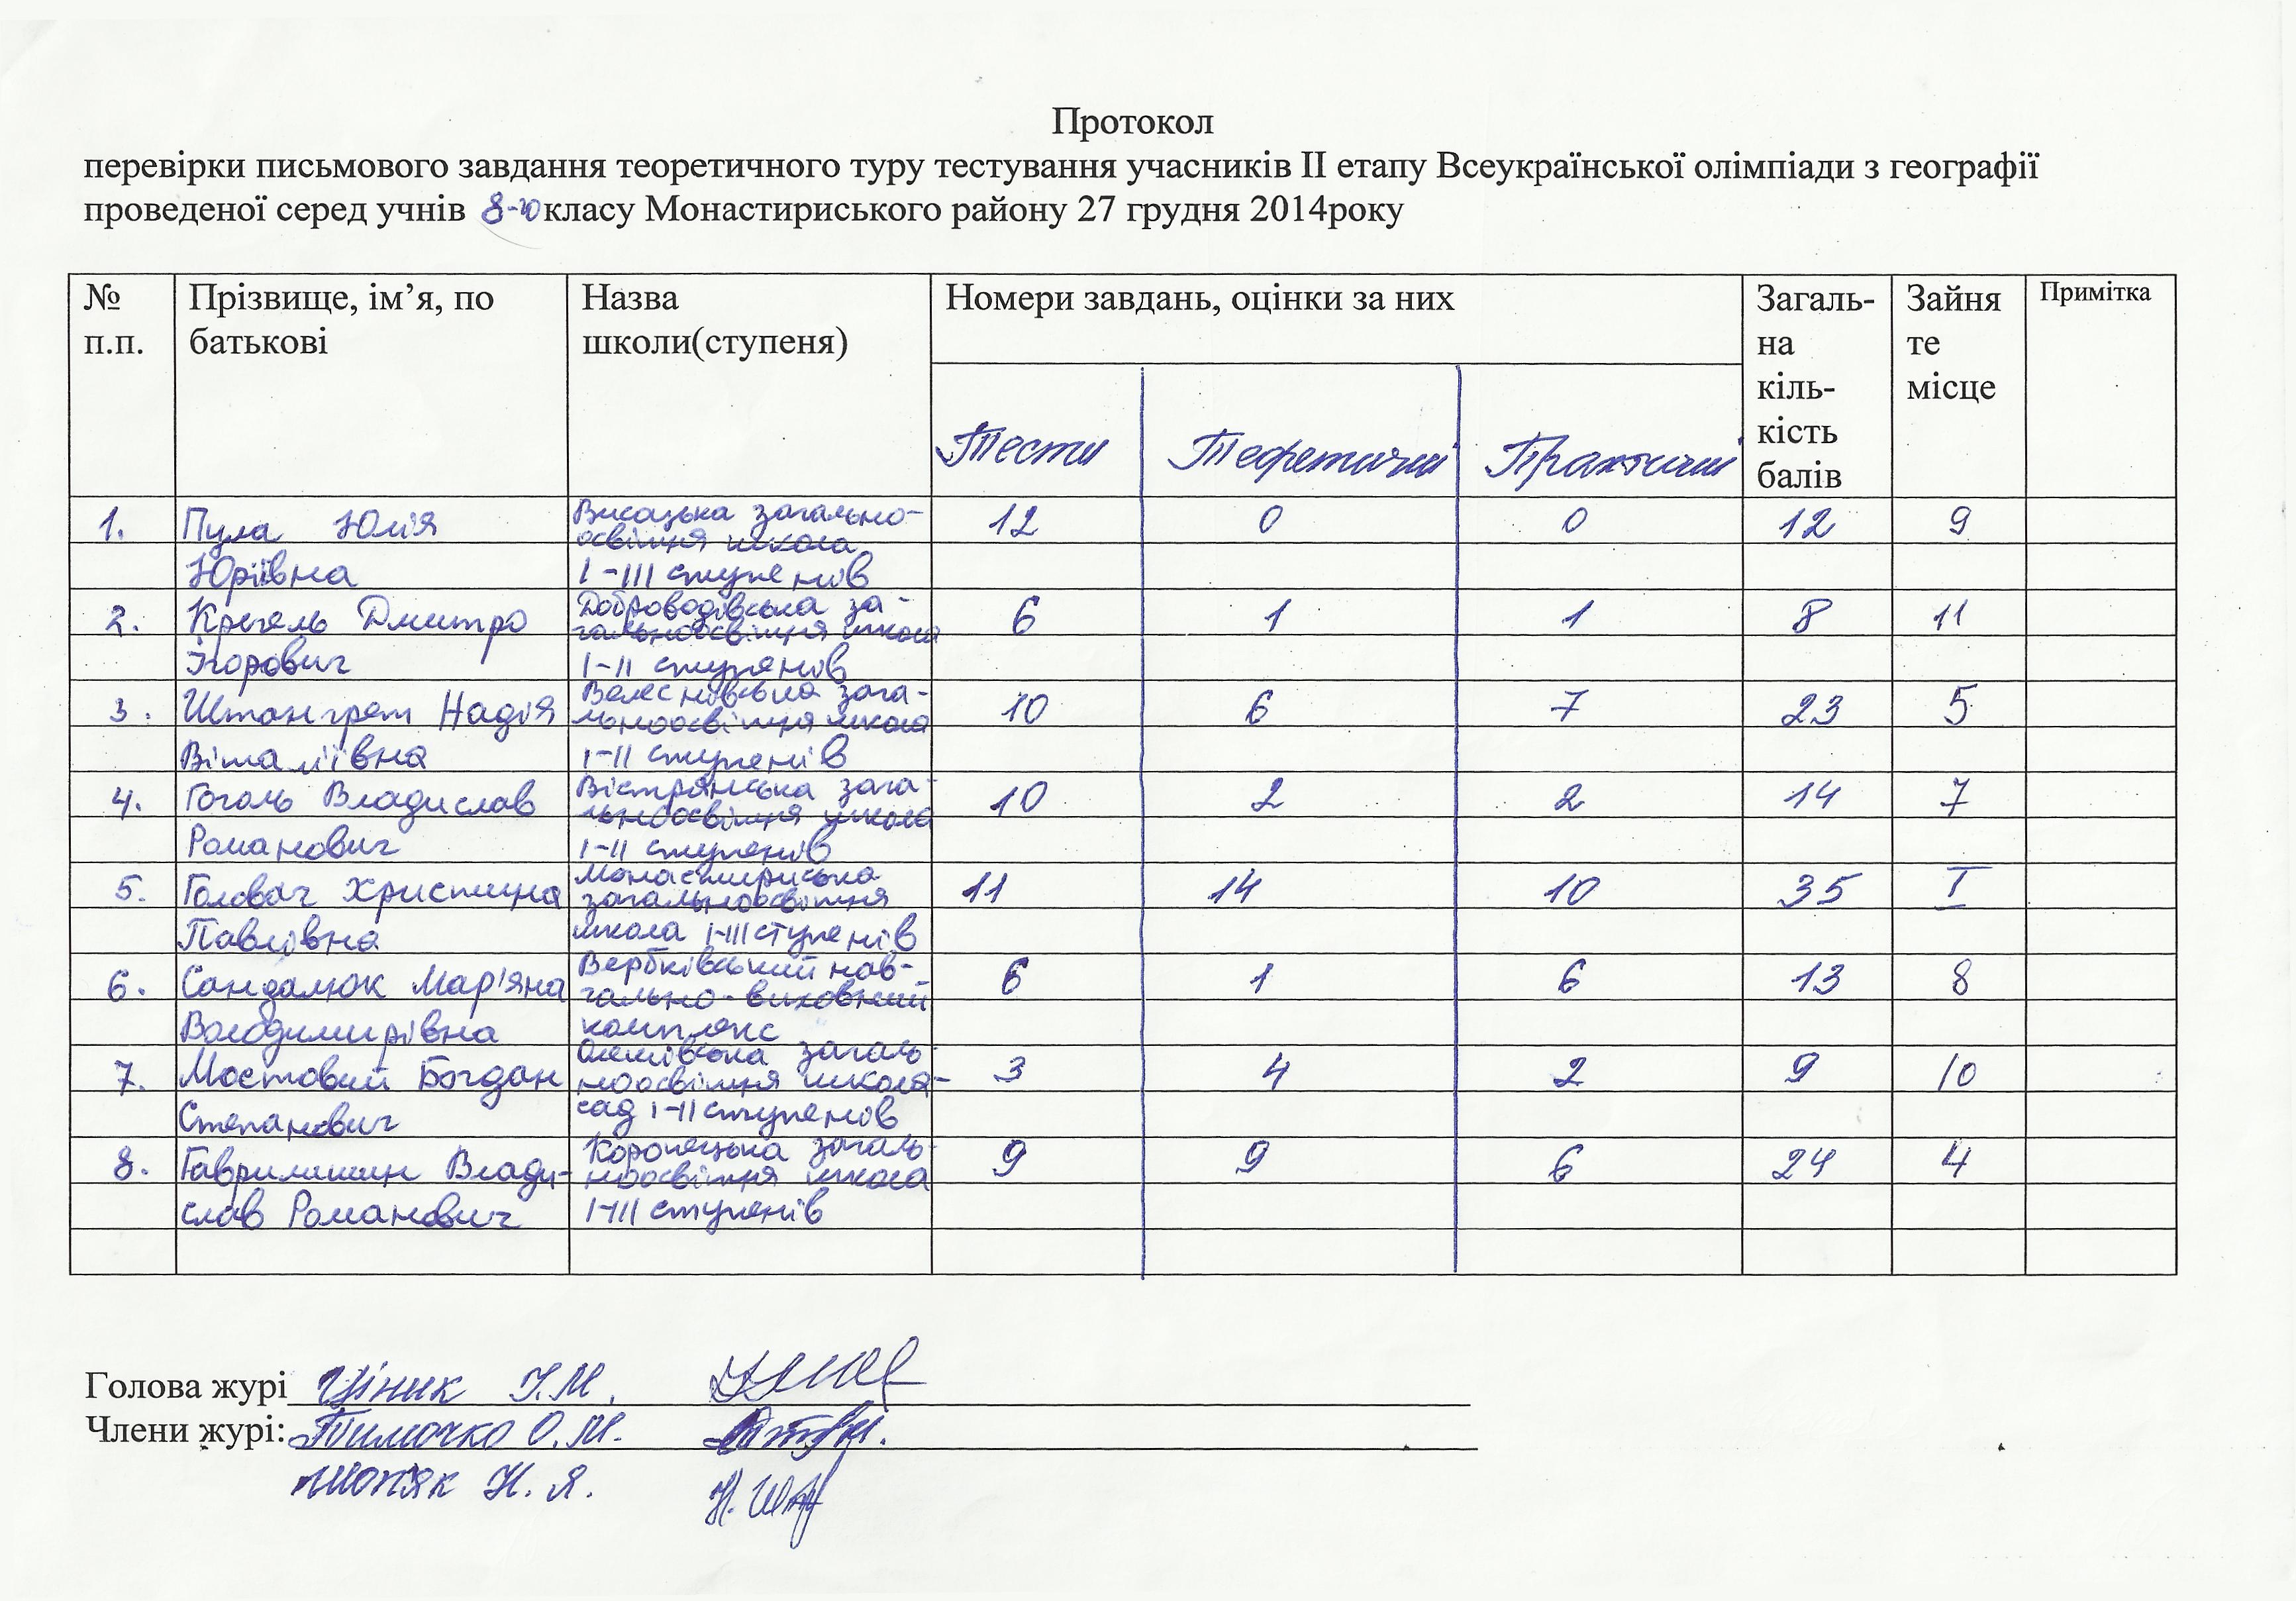 Протокол
перевірки письмового завдання теоретичного туру тестування учасників ІІ етапу Всеукраїнської олімпіади з географії
проведеної серед учнів 8-го класу Монастириського району 27 грудня 2014року
№ п.п.
Прізвище, ім’я, по батькові
Назва школи(ступеня)
Номери завдань, оцінки за них
Загаль-на кіль-кість балів
Зайня те місце
Примітка
Тести Теоретичні Практичні
1. Пула Юлія Висоцька загально- 12 0 0 12 9
освітня школа
Юріївна І-ІІІ ступенів
2. Крегель Дмитро Доброводівська за- 6 1 1 8 11
гальноосвітня школа
Ігорович І-ІІ ступенів
3. Штангрет Надія Велеснівська зага- 10 6 7 23 5
льноосвітня школа
Віталіївна І-ІІ ступенів
4. Гоголь Владислав Вістрянська зага- 10 2 2 14 7
льноосвітня школа
Романович І-ІІ ступенів
5. Головач Христина Монастириська 11 14 10 35 І
загальноосвітня
Павлівна школа І-ІІІ ступенів
6. Сандалюк Мар'яна Вербківський нав- 6 1 6 13 8
чально-виховний
Володимирівна комплекс
7. Мостовий Богдан загаль- 3 4 2 9 10
ноосвітня школа-
Степанович сад І-ІІ ступенів
8. Гаврилишин Влади- Коропецька загаль- 9 9 6 24 4
ноосвітня школа
слав Романович І-ІІІ ступенів
Голова журі І.М.
Члени журі: Тимочко О.М.
Н. Я.